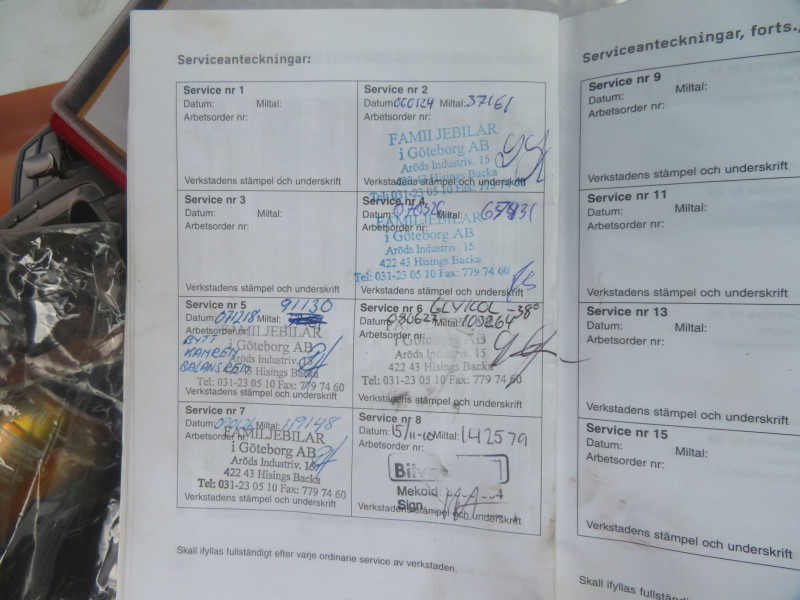 Serviceanteckningar:
Service nr 1
Datum: Miltal:
Arbetsorder nr:
Verkstadens stämpel och underskrift
Service nr 2
Datum: 060124 Miltal: 37161
Arbetsorder nr:
FAMILJEBILAR
i Göteborg AB
Aröds Industriv. 15
422 43 Hisings Backa
Verkstadens stämpel och underskrift
Tel: 031-23 05 10 Fax: 779 74 60
Service nr 3
Datum: Miltal:
Arbetsorder nr:
Verkstadens stämpel och underskrift
Service nr 4
Datum: Miltal:
Arbetsorder nr:
FAMILJEBILAR
i Göteborg AB
Aröds Industriv. 15
422 43 Hisings Backa
Tel: 031-23 05 10 Fax: 779 74 60
Verkstadens stämpel och underskrift
Service nr 5 91130
Datum: 071218 Miltal:
Arbetsorder nr:
FAMILJEBILAR
BYTT
KAMREM
BALANSREM
i Göteborg AB
Aröds Industriv. 15
422 43 Hisings Backa
Tel: 031-23 05 10 Fax: 779 74 60
Verkstadens stämpel och underskrift
Service nr 6 GLYKOL -38°
Datum: 080623 Miltal: 103264
Arbetsorder nr:
i Göteborg AB
Aröds Industriv. 15
422 43 Hisings Backa
Tel: 031-23 05 10 Fax: 779 74 60
Verkstadens stämpel och underskrift
Service nr 7
Datum: Miltal: 119148
Arbetsorder nr:
FAMILJEBILAR
i Göteborg AB
Aröds Industriv. 15
422 43 Hisings Backa
Tel: 031-23 05 10 Fax: 779 74 60
Verkstadens stämpel och underskrift
Service nr 8
Datum: 15/11-10 Miltal: 142579
Arbetsorder nr:
Mekoid:
Sign.
Verkstadens stämpel och underskrift
Skall ifyllas fullständigt efter varje ordinarie service av verkstaden.
Serviceanteckningar, forts.,
Service nr 9
Datum: Miltal:
Arbetsorder nr:
Verkstadens stämpel och underskrift
Service nr 11
Datum: Miltal:
Arbetsorder nr:
Verkstadens stämpel och underskrift
Service nr 13
Datum: Miltal:
Arbetsorder nr:
Verkstadens stämpel och underskrift
Service nr 15
Datum: Miltal:
Arbetsorder nr:
Verkstadens stämpel och underskrift
Skall ifyllas fullständigt efter varje